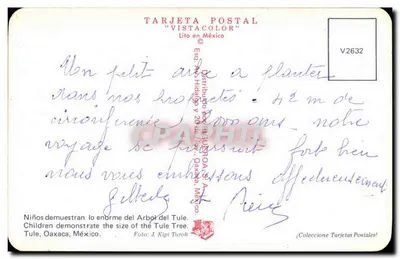 TARJETA POSTAL
"VISTACOLOR"
Lito en México
V2632
Un petit arbre a planter
dans nos : 42 m de
circonférence 2.000 ans. notre
voyage se poursuit fort bien
nous vous embrassons affectueusement
Gilberte et
Niños demuestran lo enorme del Arbol del Tule.
Children demonstrate the size of the Tule Tree.
Tule, Oaxaca, México.
Foto: J. Kipi Turok
¡Coleccione Tarjetas Postales!